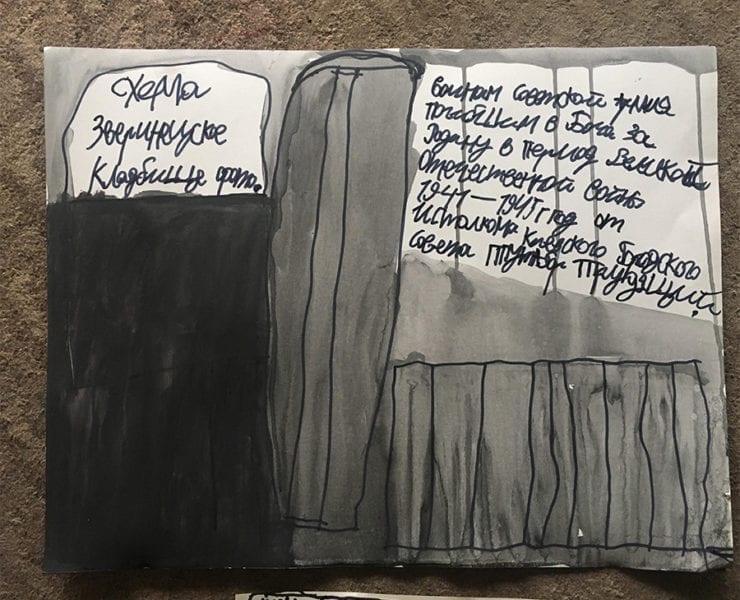 схема
Зверинецкое
Кладбище фото.
воинам советской армия
погибшим в Боча за
Родину в период Великой
Отечественной войны
1941—1945 год от
Исполкома Киевского Городского
совета